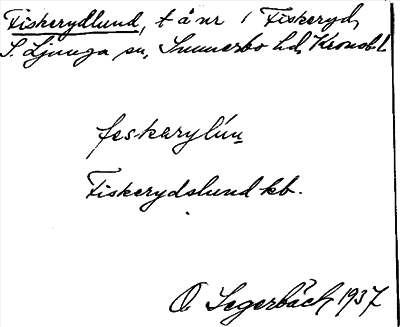 Fiskerydlund, t å nr 1 Fiskeryd,
S. Ljunga sn, Sunnerbo hd, Kronob. l.
feskarylún
Fiskerydslund kb.
O. Segerbäck 1937